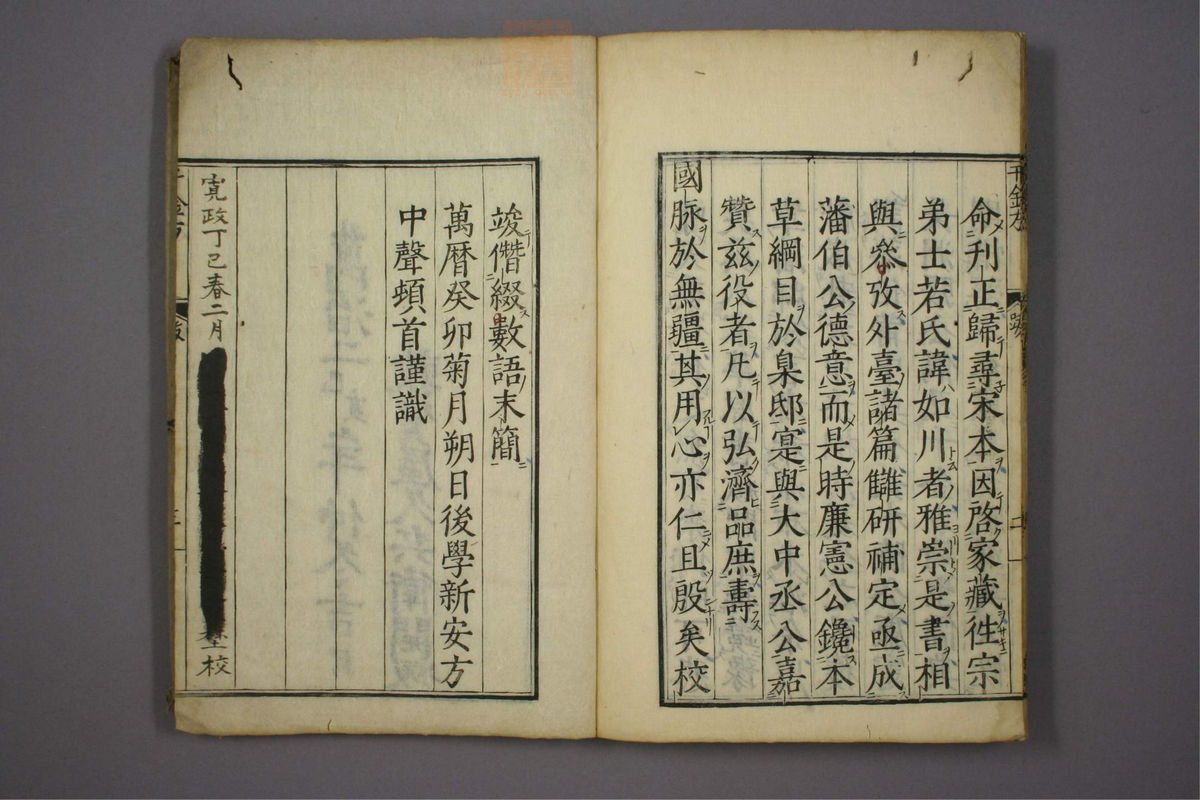 命刊正歸尋宋本因啓家藏徃宗
弟士若氏諱如川者雅崇是書相
與叅攷外臺諸篇讎研補定亟成
藩伯公德意而是時廉憲公鑱本
草綱目於臬邸寔與大中丞公嘉
贊兹役者凡以弘濟品庶壽
國脉於無疆其用心亦仁且殷矣校
竣僭綴數語末簡
萬曆癸卯菊月朔日後學新安方
中聲頓首謹識
寛政丁巳春二月
校